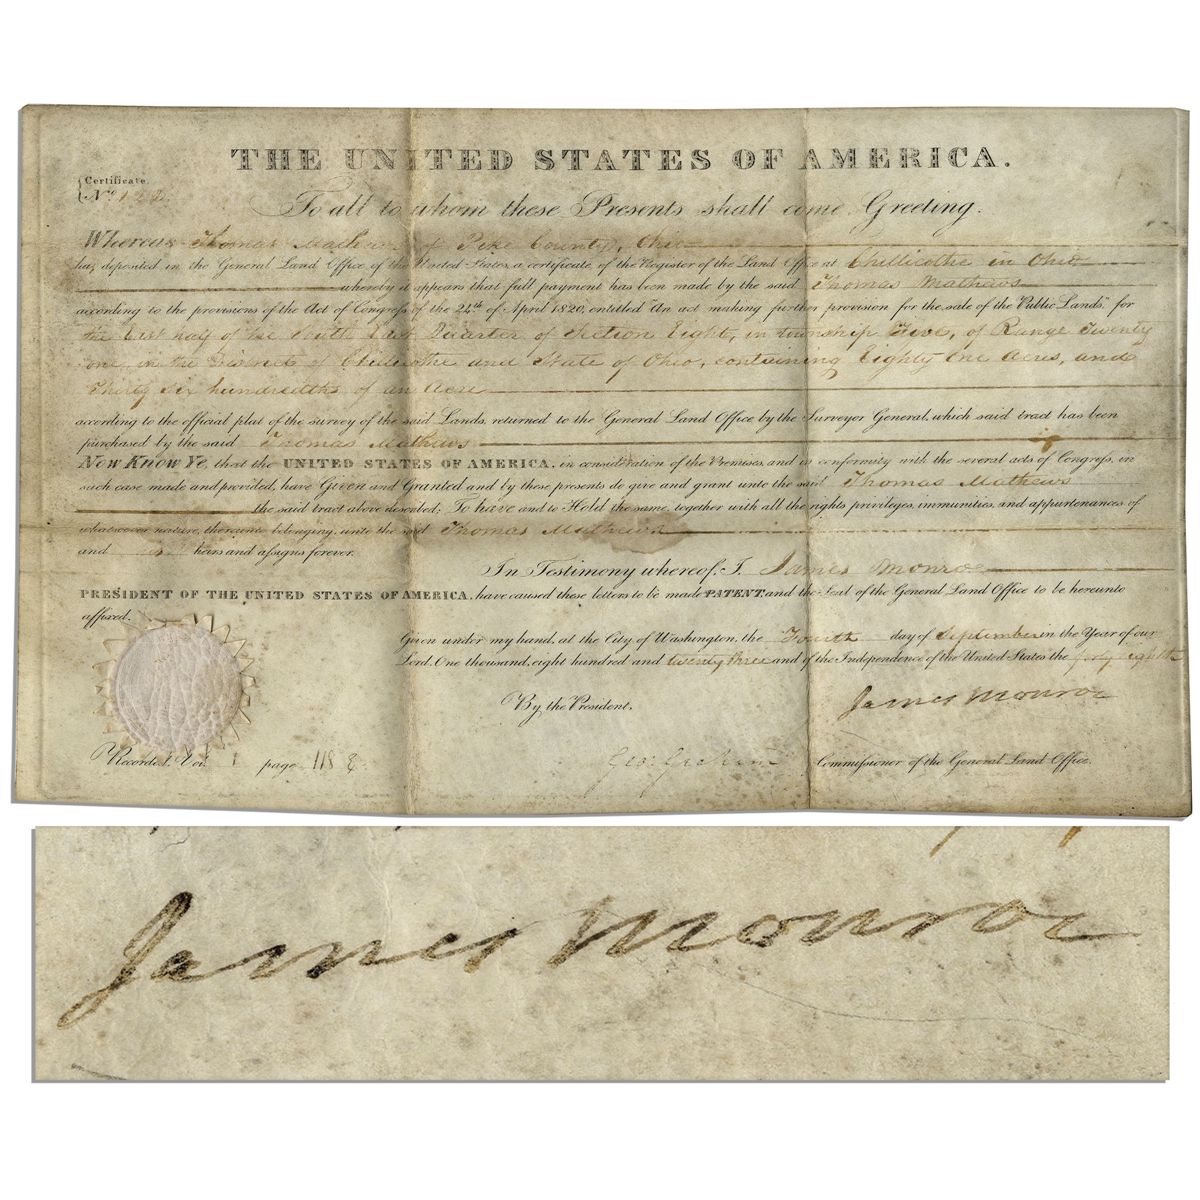 THE UNITED STATES OF AMERICA.
Certificate
No. 122
To all to whom these Presents shall come Greeting.
Whereas Thomas Mathews of Pike County, Ohio
has deposited in the General Land Office of the United States, a certificate of the Register of the Land Office at Chillicothe in Ohio
whereby it appears that full payment has been made by the said Thomas Mathews
according to the provisions of the Act of Congress of the 24th of April 1820, entitled "An act making further provision for the sale of the Public Lands" for
the East half of the South East Quarter of Section Eight, in township Five, of Range Twenty
one, in the District of Chillicothe and State of Ohio, containing Eighty One Acres, and
Thirty Six hundredths of an Acre
according to the official plat of the survey of the said Lands, returned to the General Land Office by the Surveyor General, which said tract has been
purchased by the said Thomas Mathews
Now Know Ye, that the UNITED STATES OF AMERICA, in consideration of the Premises, and in conformity with the several acts of Congress, in
such case made and provided, have Given and Granted and by these presents do give and grant unto the said Thomas Mathews
the said tract above described; To have and to Hold the same, together with all the rights, privileges, immunities, and appurtenances of
whatsoever nature, thereunto belonging, unto the said Thomas Mathews
and his heirs and assigns forever.
In Testimony whereof, I, James Monroe
PRESIDENT OF THE UNITED STATES OF AMERICA, have caused these letters to be made PATENT, and the Seal of the General Land Office to be hereunto
affixed.
Given under my hand, at the City of Washington, the Fourth day of September in the Year of our
Lord, One thousand, eight hundred and twenty three and of the Independence of the United States the forty eighth
James Monroe
By the President,
Geo: Graham Commissioner of the General Land Office.
Recorded, Vol. 1 page 118
James Monroe